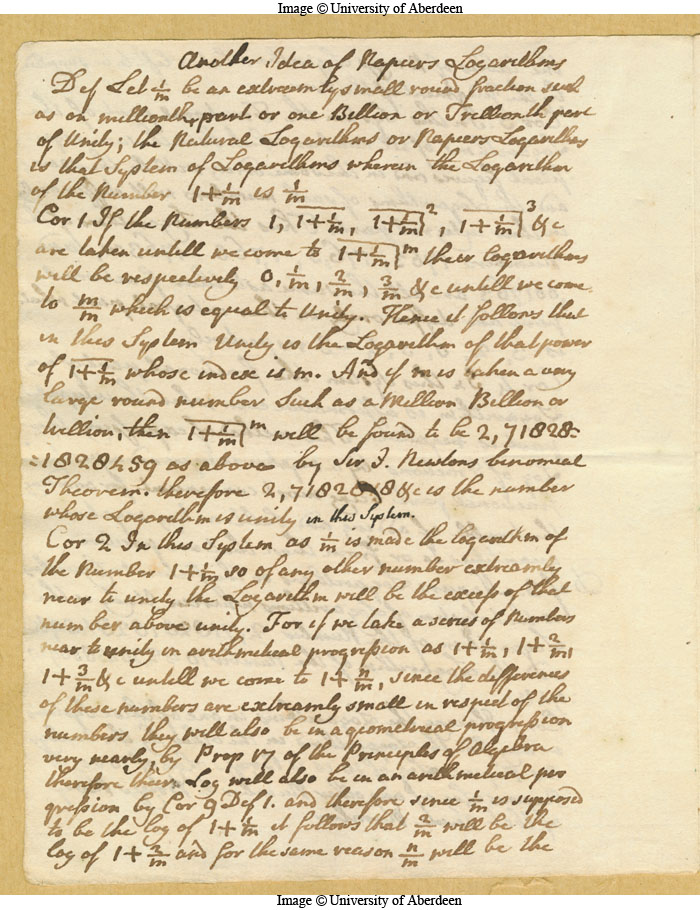 Image © University of Aberdeen
Another Idea of Napeers Logarithms
Def Let 1/m be an extreamly small round fraction such
as on millionth part or one Billion or Trellionth part
of Unity; the Natural Logarithms or Napeers Logarithms
is that System of Logarithms wherein the Logarithm
of the Number 1+1/m is 1/m
Cor 1 If the Numbers 1, 1+1/m, 1+1/m|², 1+1/m|³ &c
are taken untill we come to 1+1/m|ᵐ their logarithms
will be respectively 0, 1/m, 2/m, 3/m &c untill we come
to m/m which is equal to Unity. Hence it follows that
in this System Unity is the Logarithm of that power
of 1+1/m whose index is m. And if m is taken a very
large round number Such as a Million Billion or
trillion, then 1+1/m|ᵐ will be found to be 2,71828=
=1828459 as above by Sir I. Newtons binomial
Theorem. therefore 2,71828 &c is the number
whose Logarithm is unity in this System.
Cor 2 In this System as 1/m is made the logarithm of
the Number 1+1/m so of any other number extreamly
near to unity the Logarithm will be the excess of that
number above unity. For if we take a series of Numbers
near to unity in arithmetical progression as 1+1/m, 1+2/m,
1+3/m &c untill we come to 1+n/m, since the differences
of these numbers are extreamly small in respect of the
numbers they will also be in a geometrical progression
very nearly, by Prop 17 of the Principles of Algebra
therefore their Log will also be in an arithmetical pro
gression by Cor 9 Def 1. and therefore since 1/m is supposed
to be the log of 1+1/m it follows that 2/m will be the
log of 1+2/m and for the same reason n/m will be the
Image © University of Aberdeen